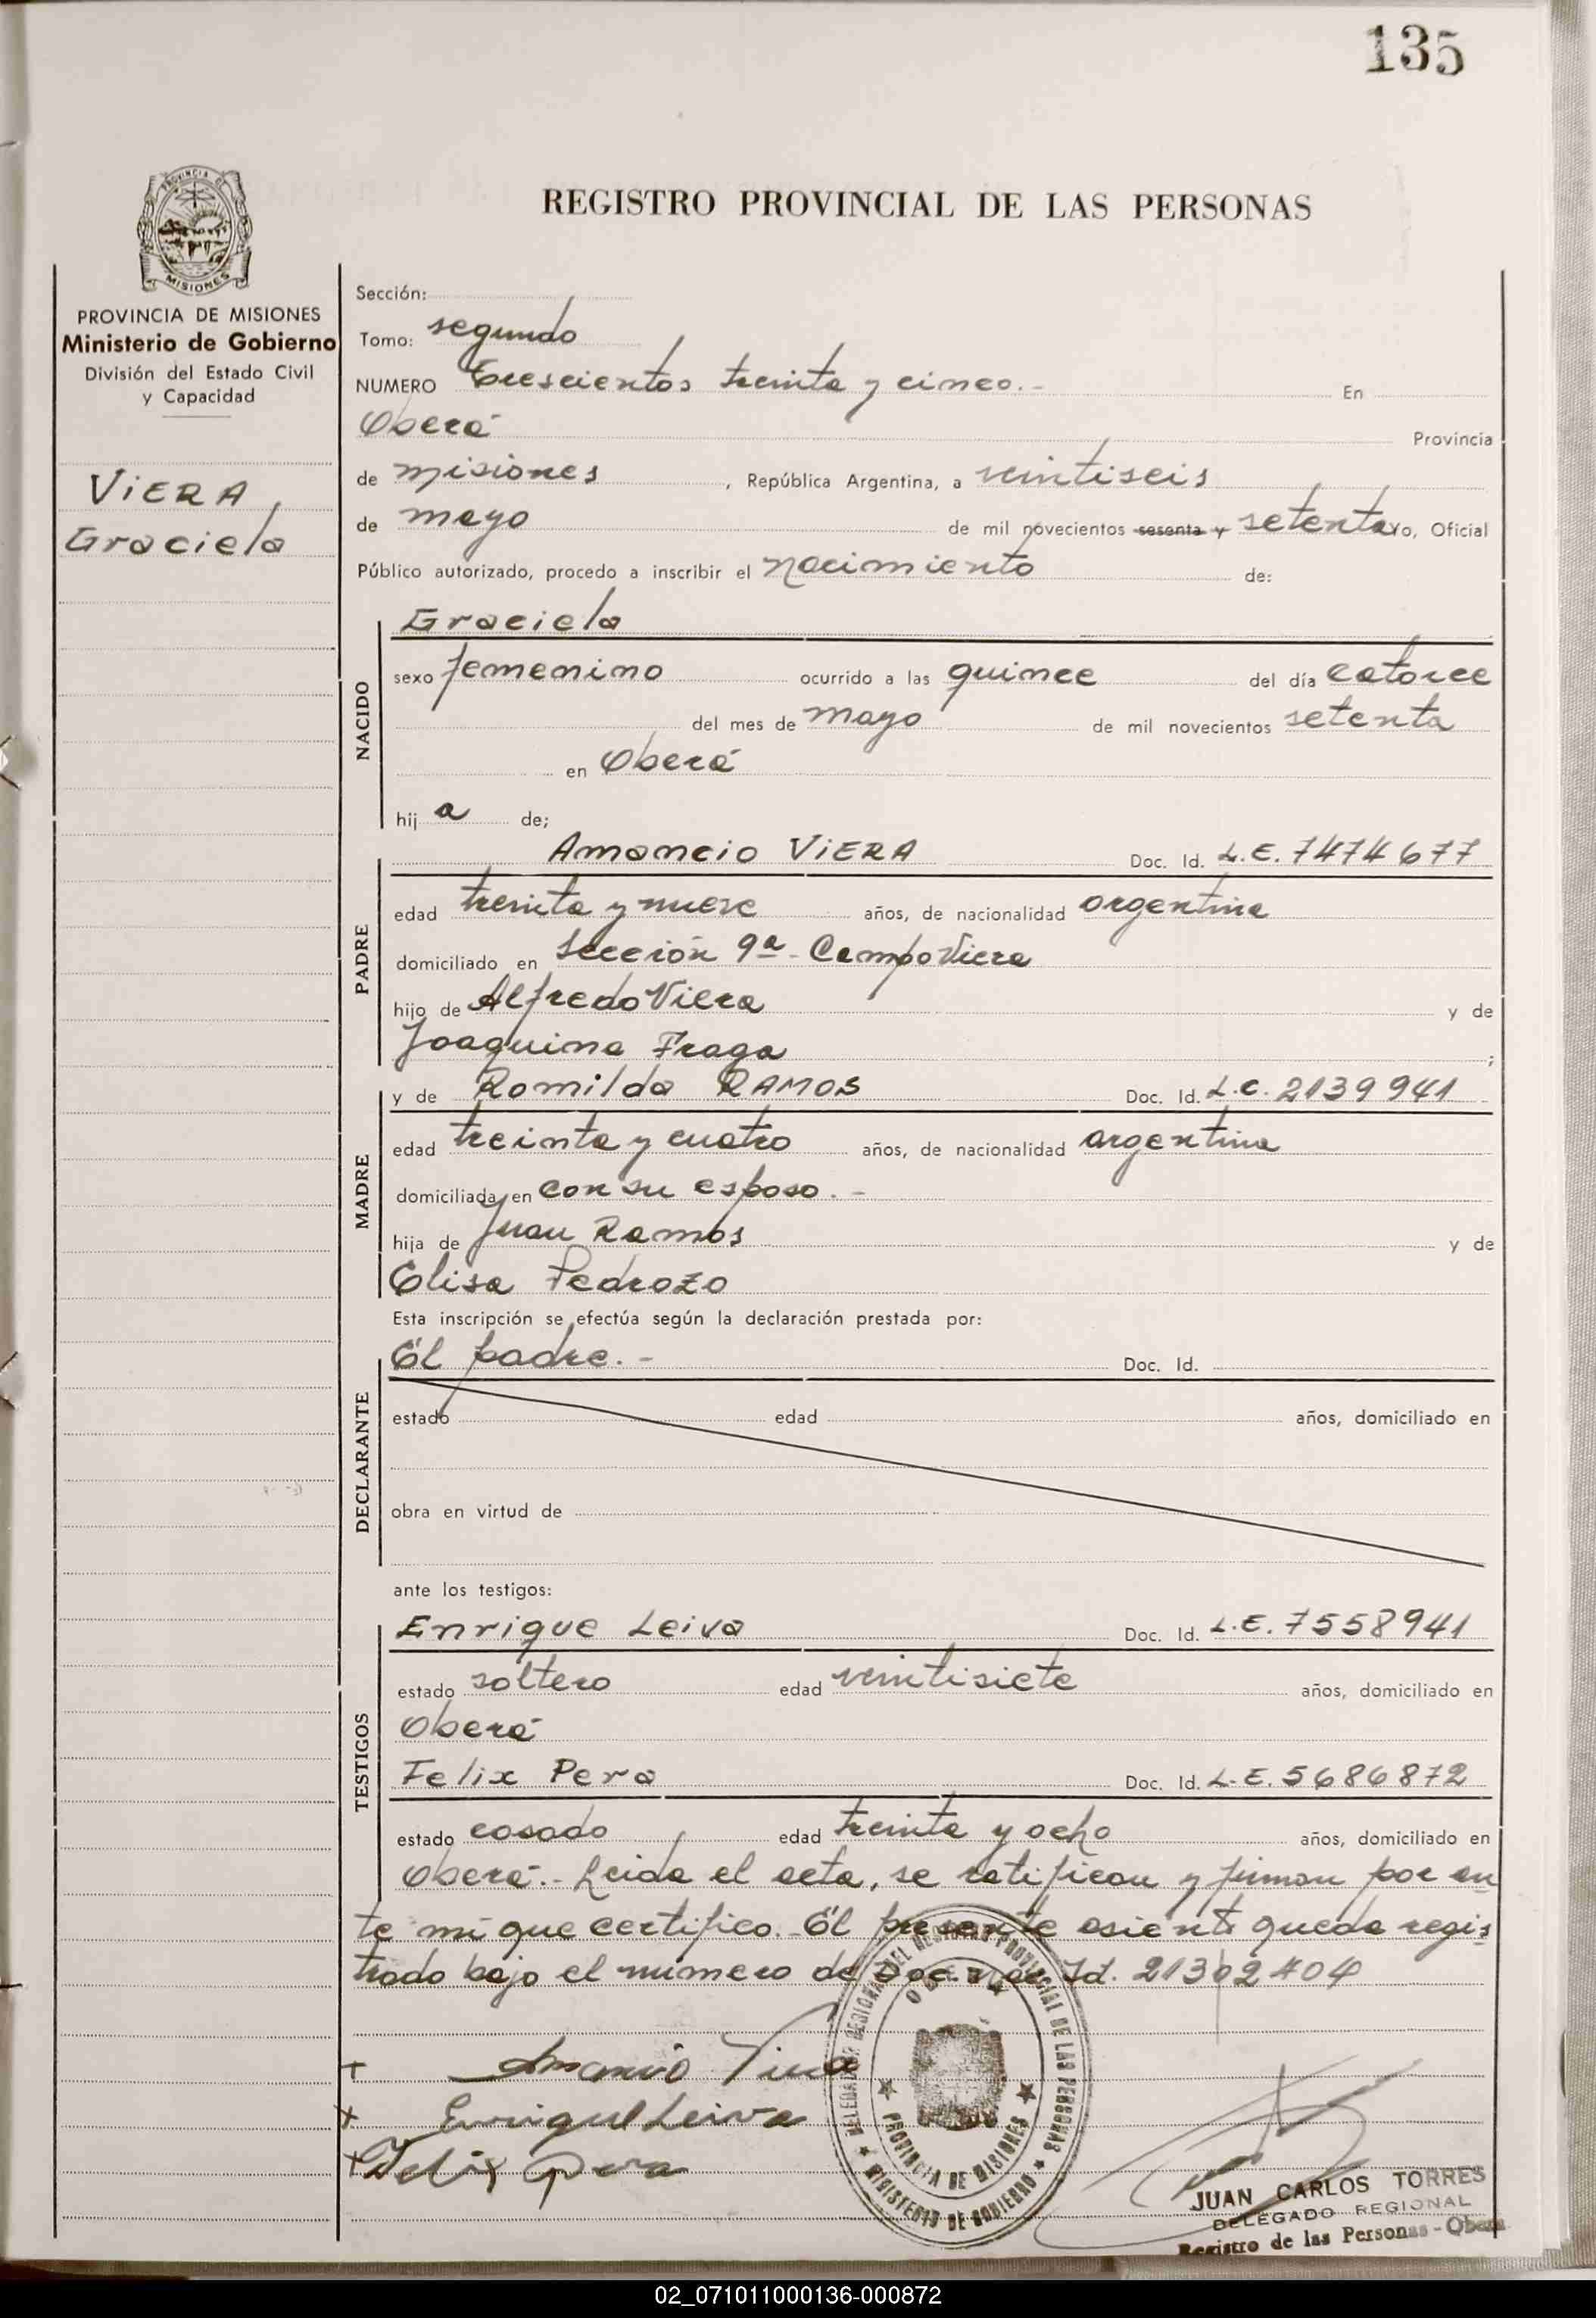 135
PROVINCIA DE
MISIONES
REGISTRO PROVINCIAL DE LAS PERSONAS
PROVINCIA DE MISIONES
Ministerio de Gobierno
División del Estado Civil
y Capacidad
VIERA,
Graciela
Sección:
Tomo: segundo
NUMERO Trescientos treinta y cinco.- En
Oberá Provincia
de misiones, República Argentina, a veintiseis
de mayo de mil novecientos sesenta y setenta yo, Oficial
Público autorizado, procedo a inscribir el nacimiento de:
NACIDO
Graciela
sexo femenino ocurrido a las quince del día catorce
del mes de mayo de mil novecientos setenta
en Oberá
hij a de;
PADRE
Amancio VIERA Doc. Id. L.E. 7474677
edad treinta y nueve años, de nacionalidad argentina
domiciliado en Sección 9ª - Campo Viera
hijo de Alfredo Viera y de
Joaquina Fraga ;
MADRE
y de Romilda RAMOS Doc. Id. L.C. 2139941
edad treinta y cuatro años, de nacionalidad argentina
domiciliada en con su esposo.-
hija de Juan Ramos y de
Elisa Pedrozo
Esta inscripción se efectúa según la declaración prestada por:
DECLARANTE
El padre.- Doc. Id.
estado edad años, domiciliado en
obra en virtud de
ante los testigos:
TESTIGOS
Enrique Leiva Doc. Id. L.E. 7558941
estado soltero edad veintisiete años, domiciliado en
Oberá
Felix Pera Doc. Id. L.E. 5686872
estado casado edad treinta y ocho años, domiciliado en
Oberá.- Leida el acta, se ratifican y firman por an
te mi que certifico. El presente asiento queda regis
trado bajo el número de Doc. Nac. Id.
+ Amancio Viera
+ Enrique Leiva
+ Felix Pera
REGIONAL DEL REGISTRO PROVINCIAL DE LAS PERSONAS
OBERA
PROVINCIA DE MISIONES
MINISTERIO DE GOBIERNO
JUAN CARLOS TORRES
DELEGADO REGIONAL
Registro de las Personas - Oberá
02_071011000136-000872